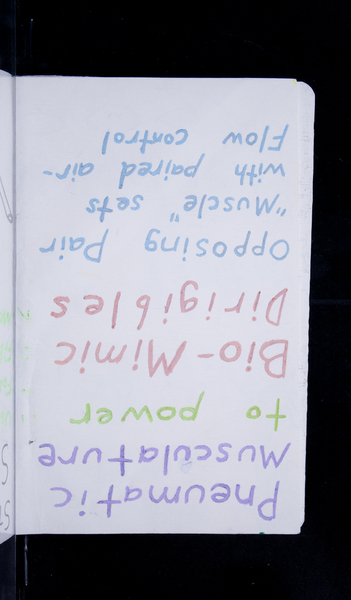 Pneumatic
Musculature
to power
Bio-Mimic
Dirigibles
Opposing Pair
"Muscle" sets
with paired air-
Flow control